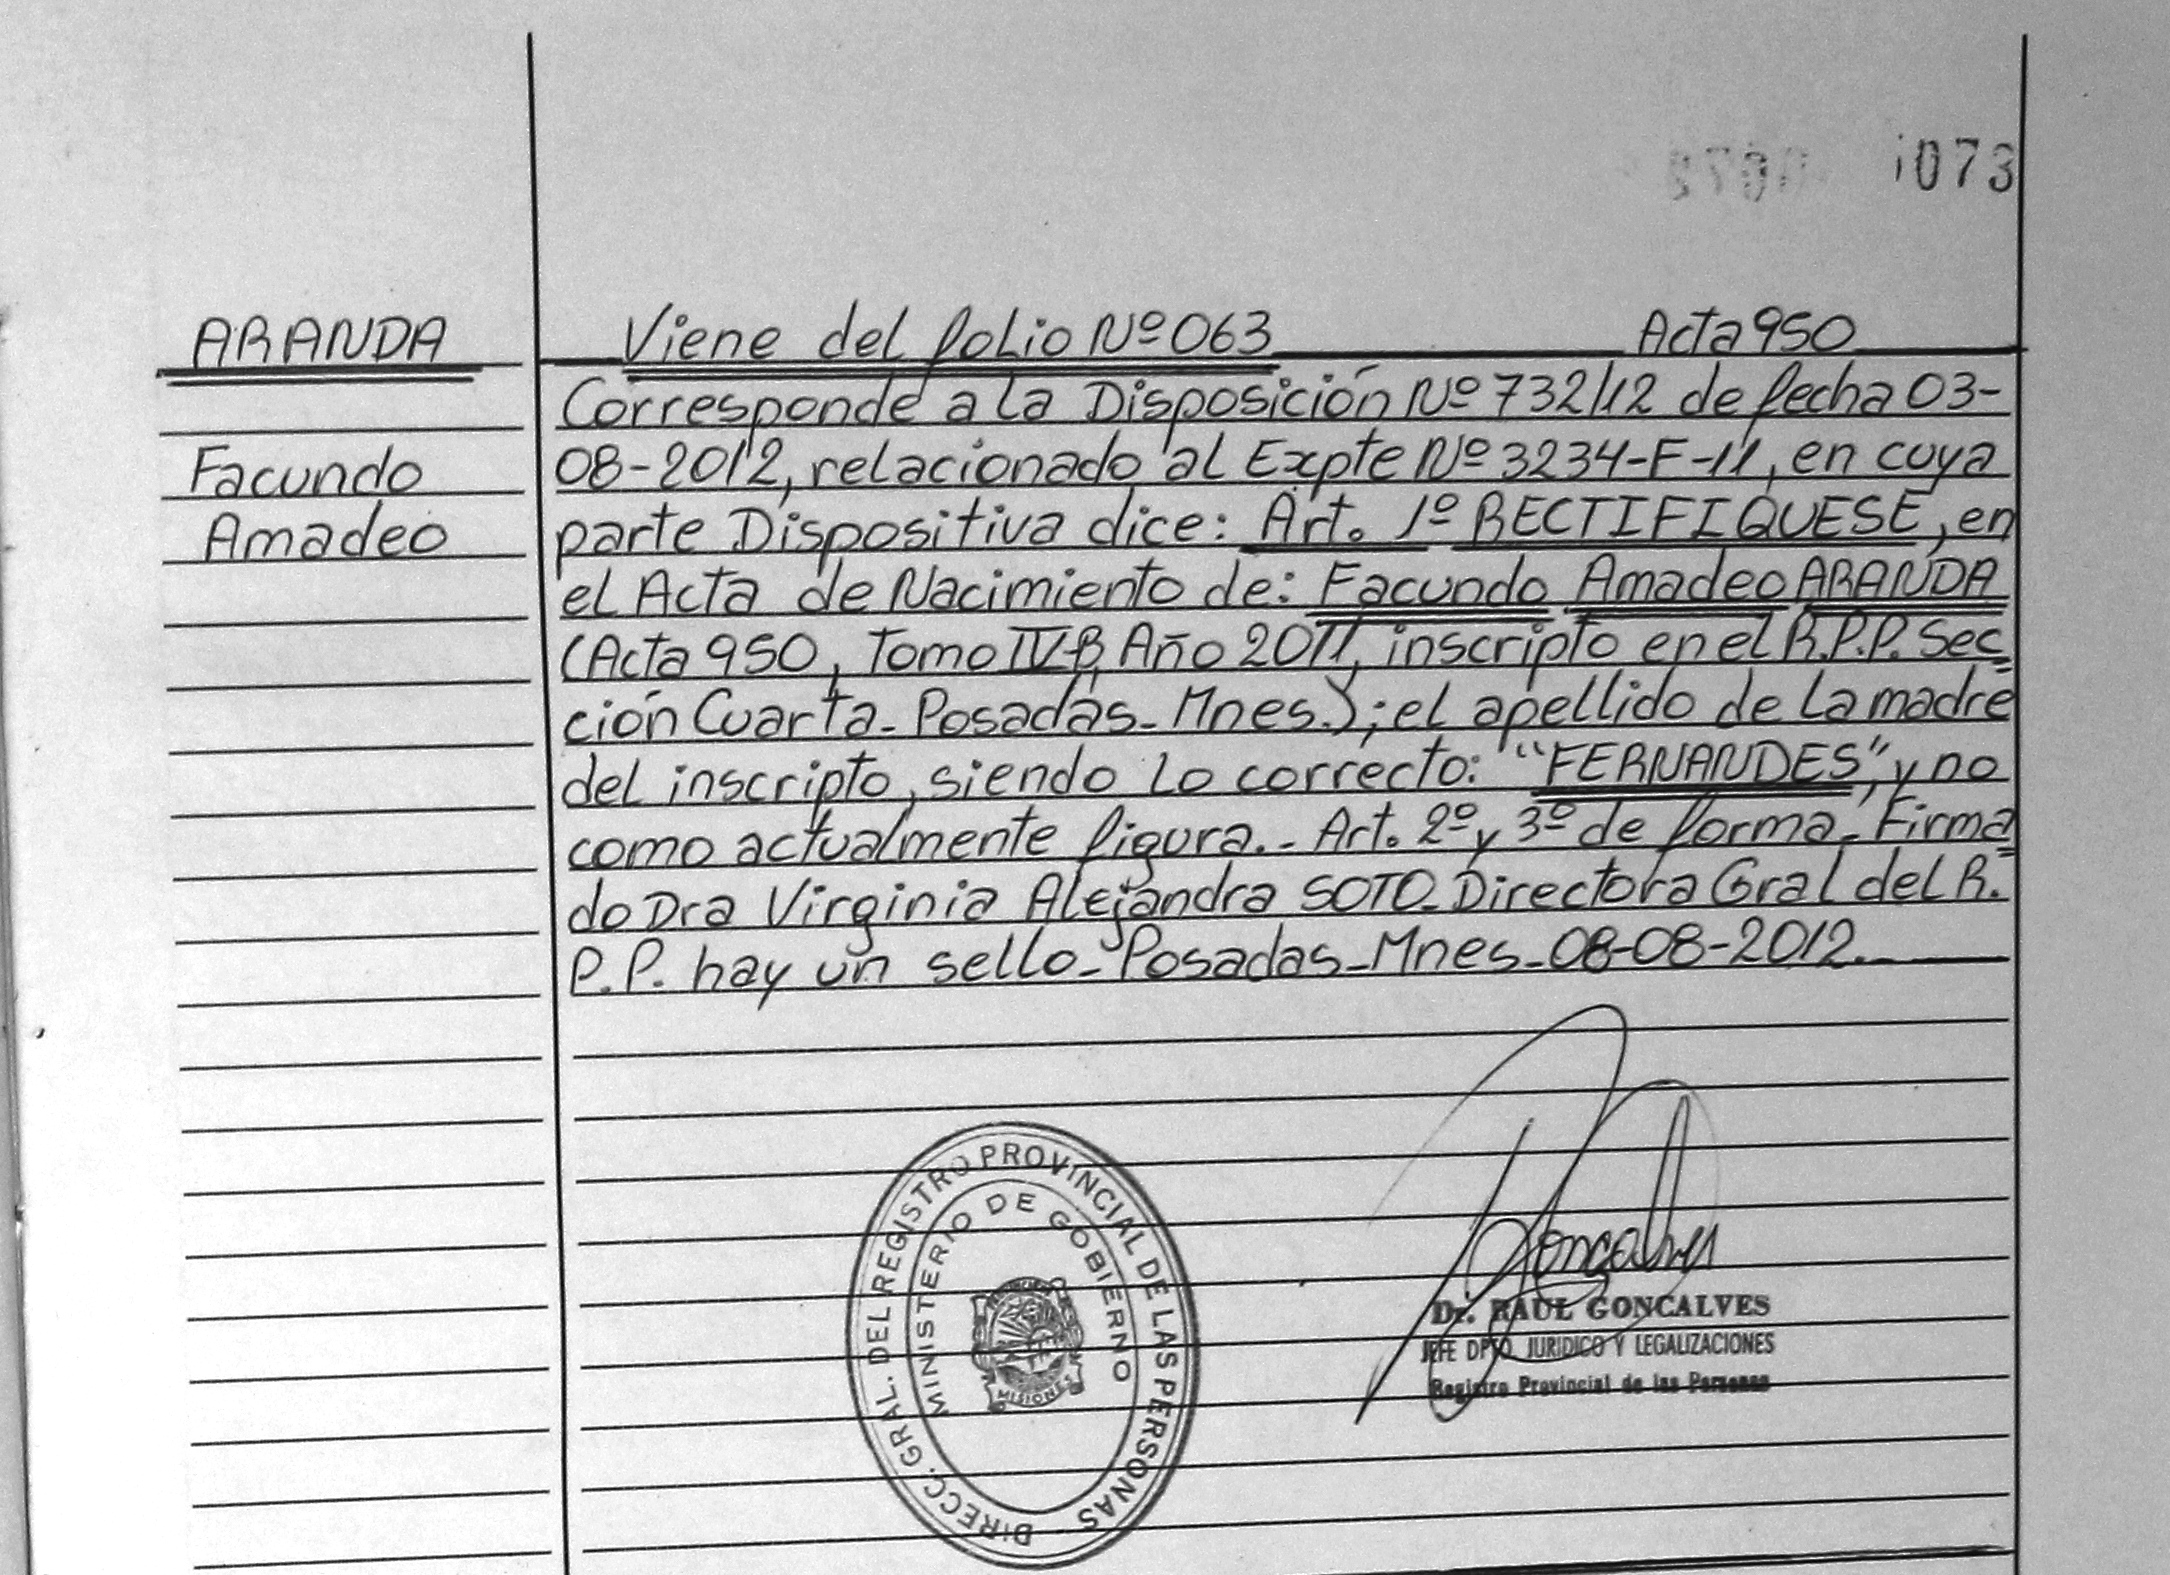 073
ARANDA
Facundo
Amadeo
Viene del folio Nº 063 Acta 950
Corresponde a la Disposición Nº 732/12 de fecha 03-
08-2012, relacionado al Expte Nº 3234-F-11, en cuya
parte Dispositiva dice: Art. 1º RECTIFIQUESE, en
el Acta de Nacimiento de: Facundo Amadeo ARANDA
(Acta 950, Tomo IV-B, Año 2011, inscripto en el R.P.P. Sec
ción Cuarta- Posadas- Mnes.); el apellido de la madre
del inscripto, siendo lo correcto: "FERNANDES", y no
como actualmente figura.- Art. 2º y 3º de forma- Firma
do Dra Virginia Alejandra SOTO- Directora Gral del R.
P.P. hay un sello- Posadas- Mnes- 08-08-2012.
DIRECC. GRAL. DEL REGISTRO PROVINCIAL DE LAS PERSONAS
MINISTERIO DE GOBIERNO
MISIONES
Goncalves
Dr. RAUL GONCALVES
JEFE DPTO. JURIDICO Y LEGALIZACIONES
Registro Provincial de las Personas